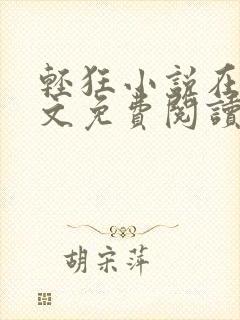 輕狂小說在
文免費閱讀
胡宗萍